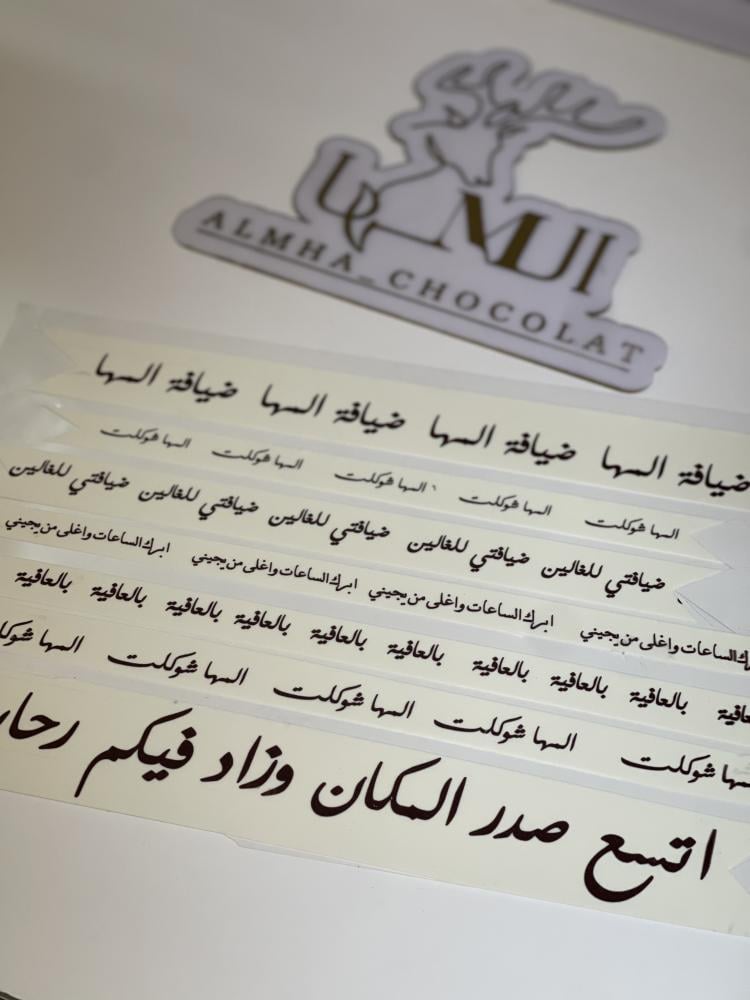 المها
ALMHA_CHOCOLAT
ضيافة المها ضيافة المها ضيافة المها ضيافة المها
المها شوكلت المها شوكلت المها شوكلت المها شوكلت المها شوكلت
ضيافتي للغالين ضيافتي للغالين ضيافتي للغالين ضيافتي للغالين ضيافتي للغالين
ابرك الساعات واغلى من يجيني ابرك الساعات واغلى من يجيني ابرك الساعات واغلى من يجيني ابرك الساعات واغلى من يجيني
بالعافية بالعافية بالعافية بالعافية بالعافية بالعافية بالعافية بالعافية بالعافية
المها شوكلت المها شوكلت المها شوكلت المها شوكلت المها
اتسع صدر المكان وزاد فيكم